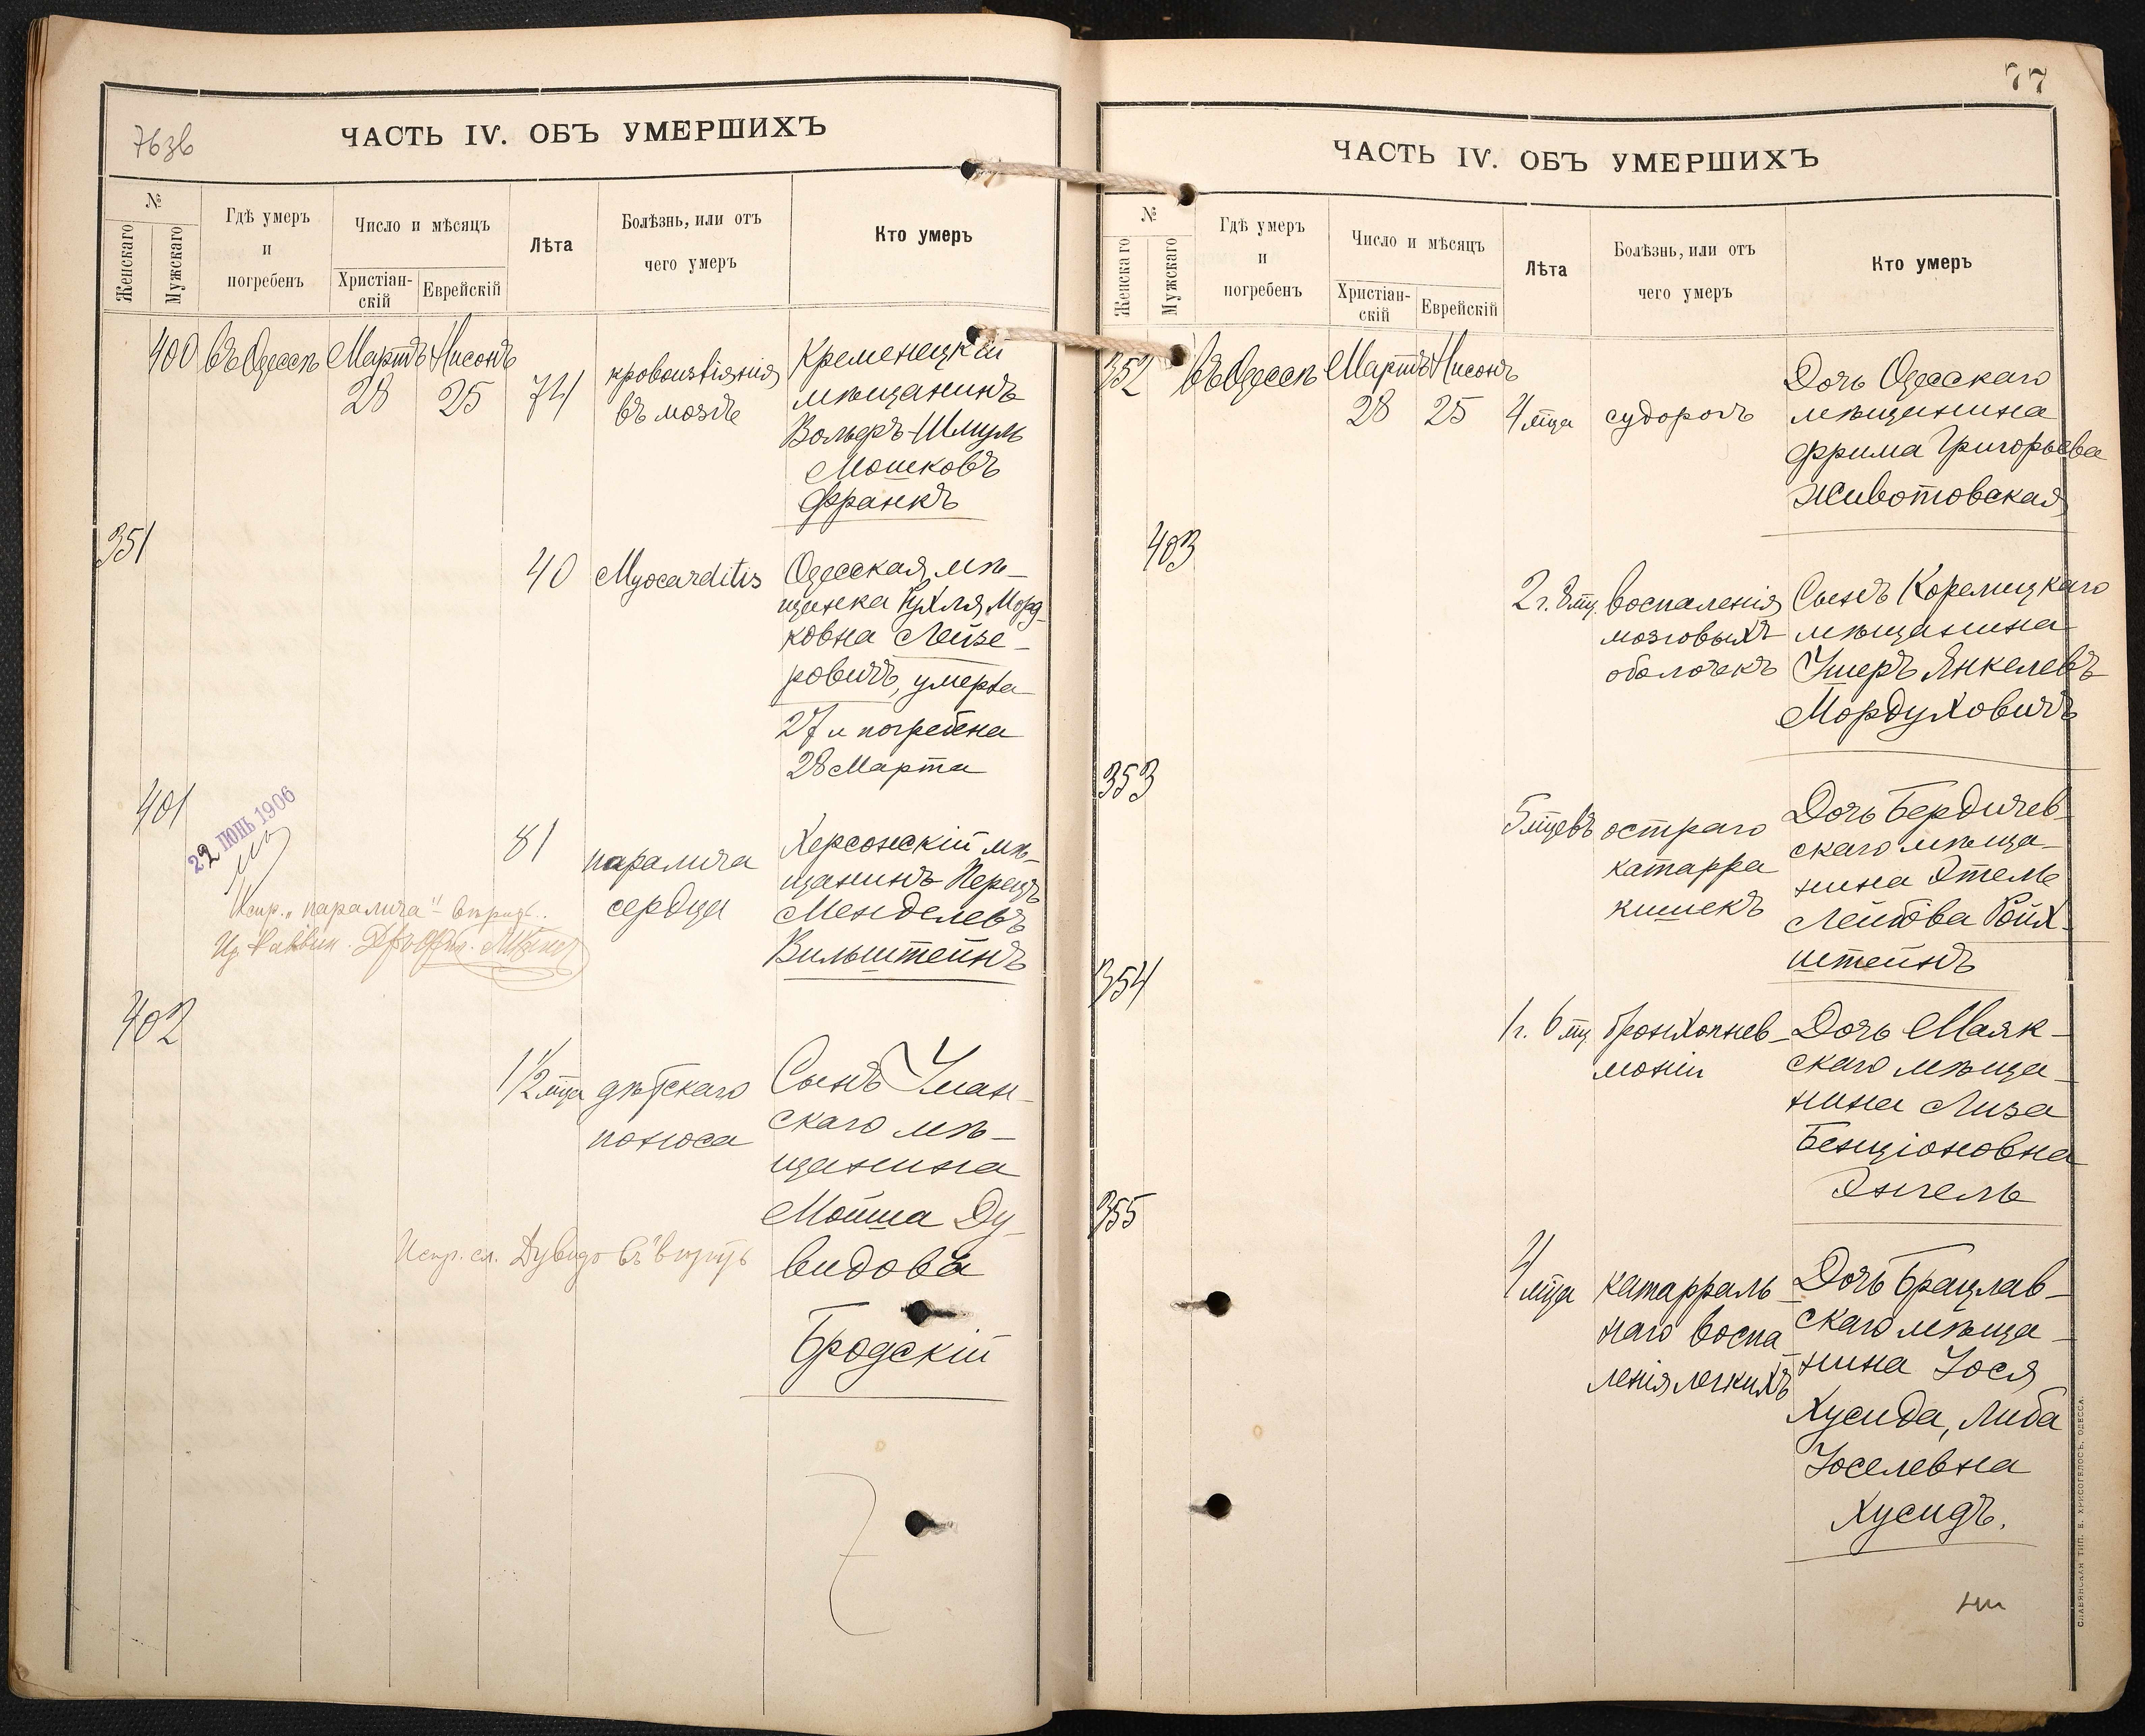 76 зв
ЧАСТЬ IV. ОБЪ УМЕРШИХЪ
№
Женскаго
Мужскаго
Гдѣ умеръ
и
погребенъ
Число и мѣсяцъ
Христіан-
скій
Еврейскій
Лѣта
Болѣзнь, или отъ
чего умеръ
Кто умеръ
400 въ Одессѣ Мартъ Нисонъ
28 25 74
кровоизліянія
въ мозгъ
Кременецкій
мѣщанинъ
Вольфъ-Шмуль
Мошковъ
Франкъ
351
40 Myocarditis
Одесская мѣ-
щанка Рухля Морд-
ковна Лейзе-
ровичъ, умерла
27 и погребена
28 Марта
401
22 ІЮНЬ 1906
81
паралича
сердца
Херсонскій мѣ-
щанинъ Перецъ
Менделевъ
Вильштейнъ
Испр. "паралича"
402
1 1/2 мца дѣтскаго
поноса
Сынъ Уман-
скаго мѣ-
щанина
Мойша Ду-
видовъ
Бродскій
Испр. сл. Дувидовъ
77
ЧАСТЬ IV. ОБЪ УМЕРШИХЪ
№
Женскаго
Мужскаго
Гдѣ умеръ
и
погребенъ
Число и мѣсяцъ
Христіан-
скій
Еврейскій
Лѣта
Болѣзнь, или отъ
чего умеръ
Кто умеръ
352 въ Одессѣ Мартъ Нисонъ
28 25 4 мца судорогъ
Дочь Одесскаго
мѣщанина
Фрима Григорьева
Животовская
403
2 г. 8 мц. воспаленія
мозговыхъ
оболочекъ
Сынъ Корелицкаго
мѣщанина
Ушеръ Янкелевъ
Мордуховичъ
353
5 мцевъ остраго
катарра
кишекъ
Дочь Бердичев-
скаго мѣща-
нина Этель
Лейбова Ройх-
штейнъ
354
1 г. 6 мц. бронхопнев-
моніи
Дочь Маяк-
скаго мѣща-
нина Лиза
Бенціоновна
Энгель
355
4 мца катарраль-
наго воспа-
ленія легкихъ
Дочь Брацлав-
скаго мѣща-
нина Іося
Хусида, Либа
Іоселевна
Хусидъ.
СЛАВЯНСКАЯ ТИП. Е. ХРИСОГЕЛОСЪ, ОДЕССА.